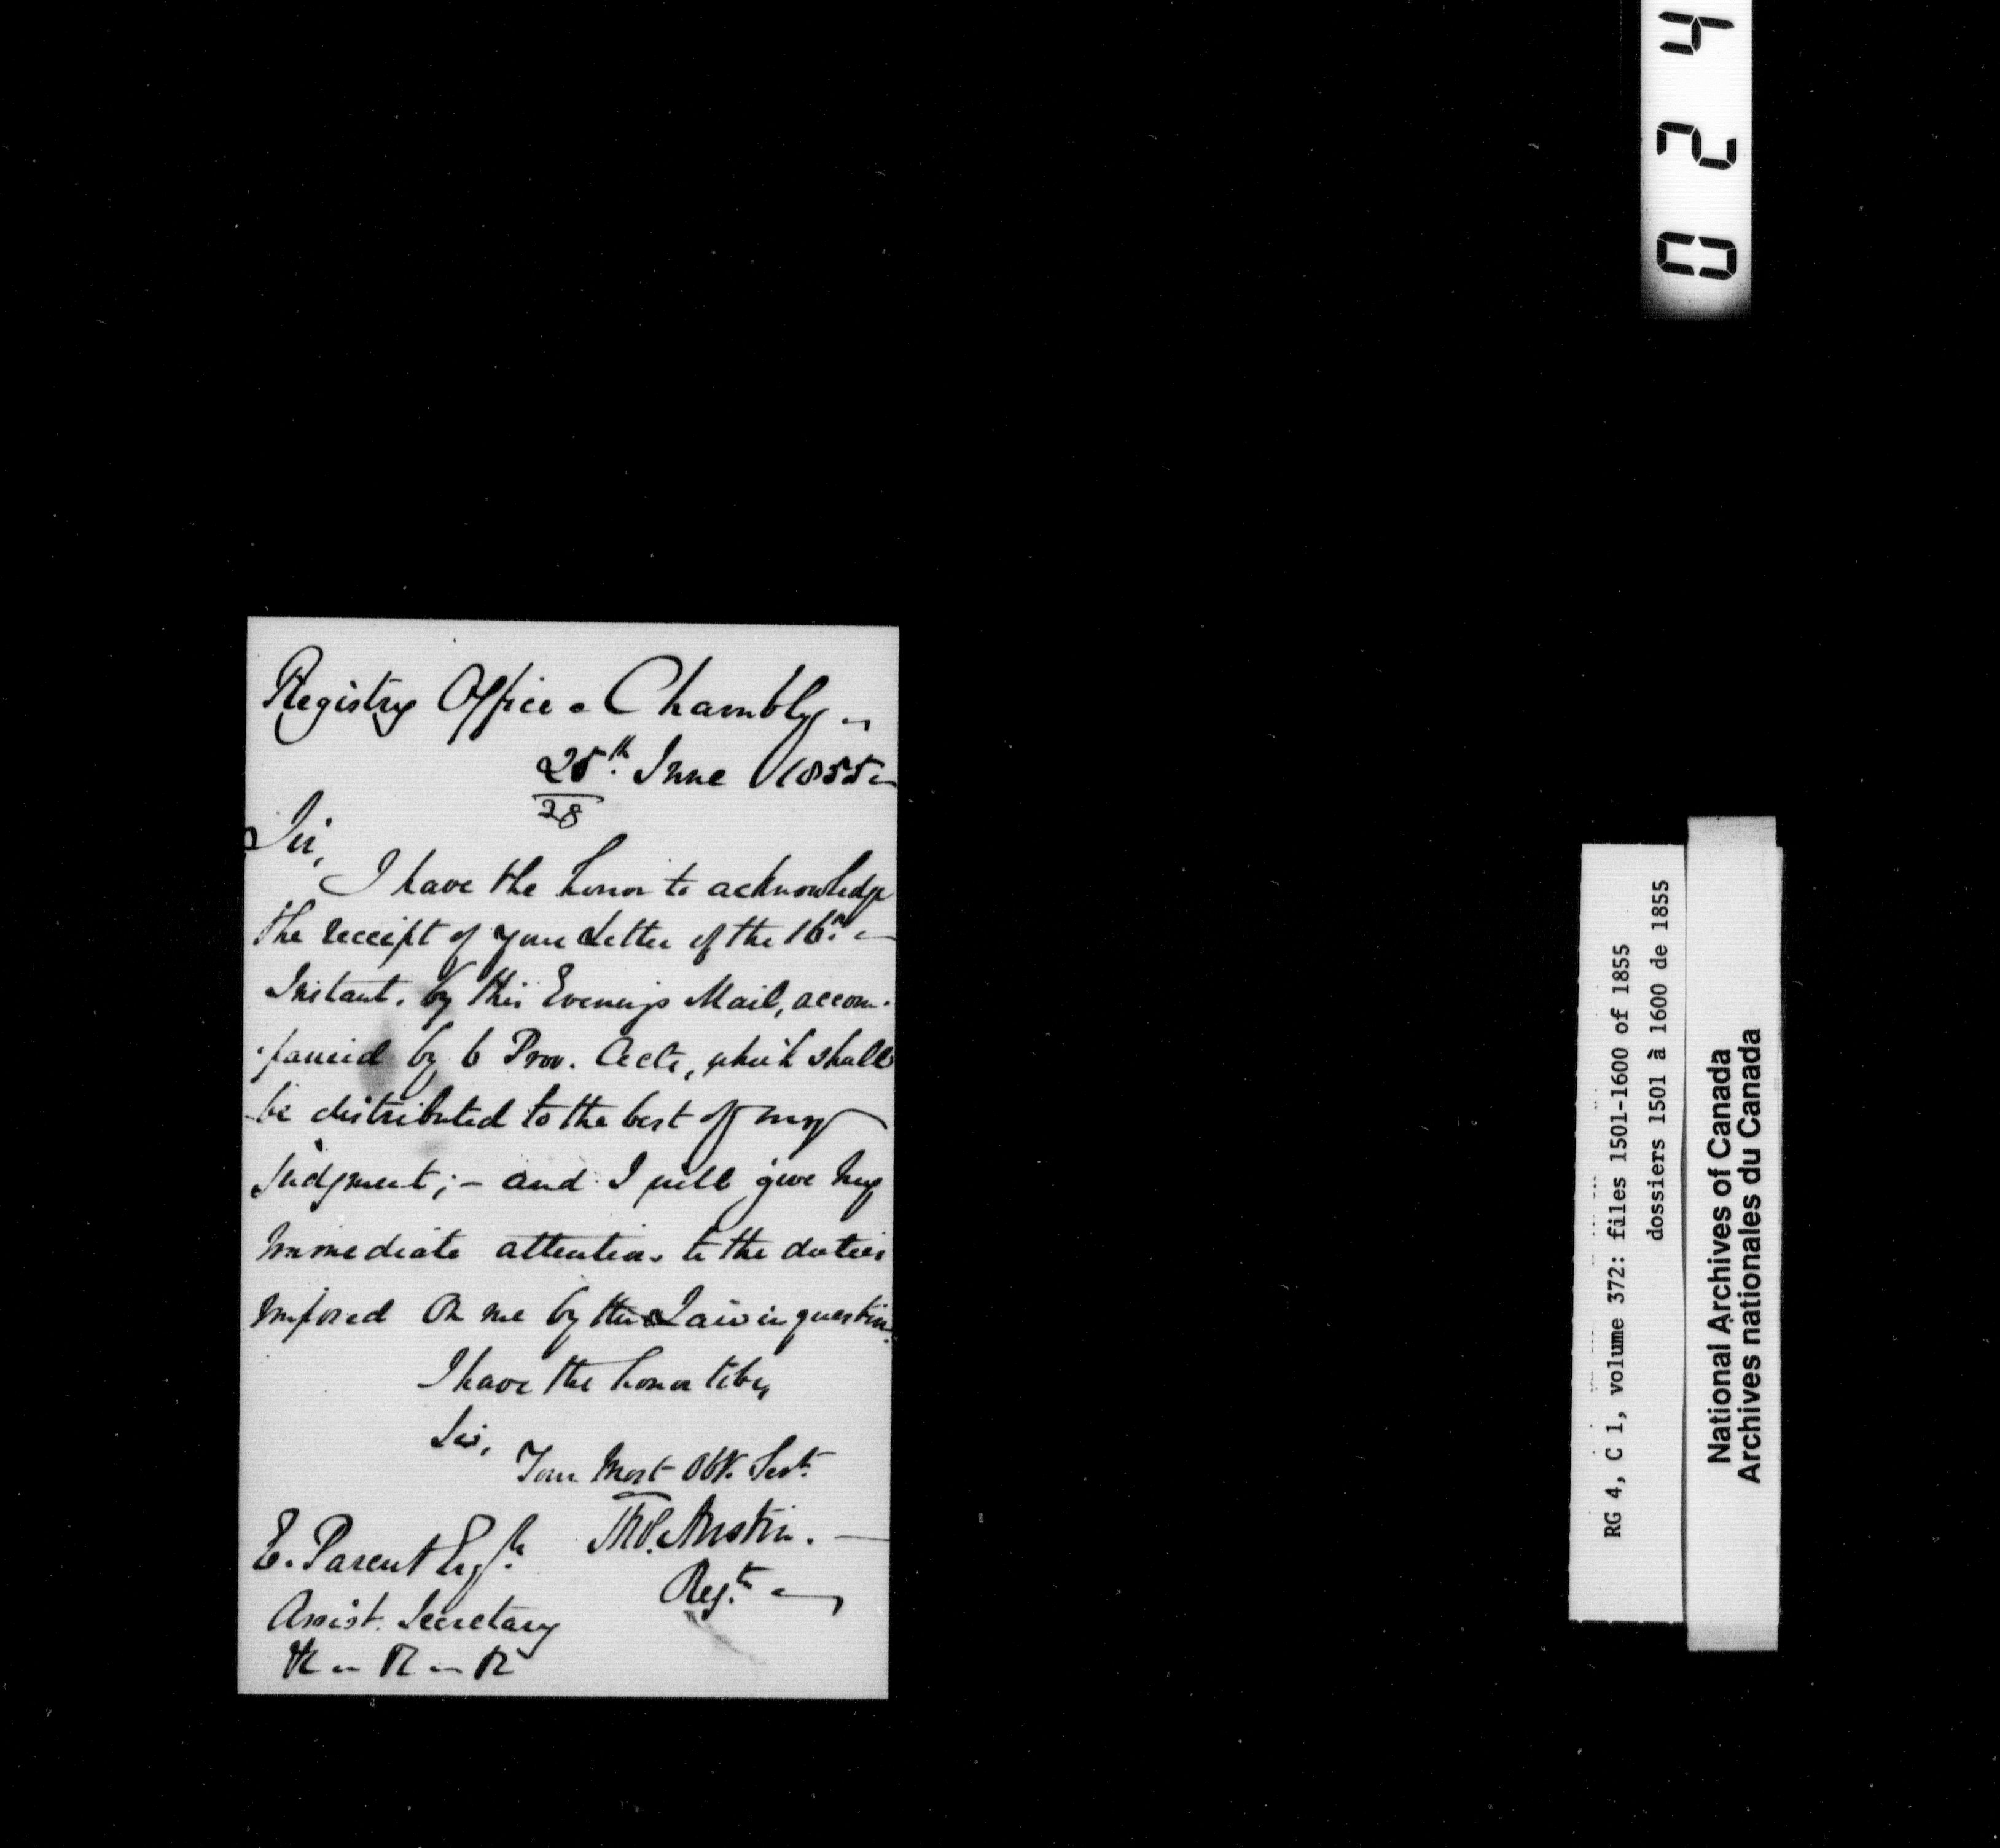 Registry Office - Chambly -
25th. June 1855 -
28
Sir,
I have the honor to acknowledge
the receipt of your Letter of the 16th. -
Instant. by this Evenings Mail, accom-
-panied by 6 Prov. Acts, which shall
be distributed to the best of my
judgment; - and I will give my
immediate attention to the duties
imposed on me by the Law in question.
I have the honor to be,
Sir,
Your Most Obt. Servt.
Thos. Austin. -
Regr. -
E. Parent Esqr.
Assist. Secretary
&c - &c - &c
0 2 4
RG 4, C 1, volume 372: files 1501-1600 of 1855
dossiers 1501 à 1600 de 1855
National Archives of Canada
Archives nationales du Canada